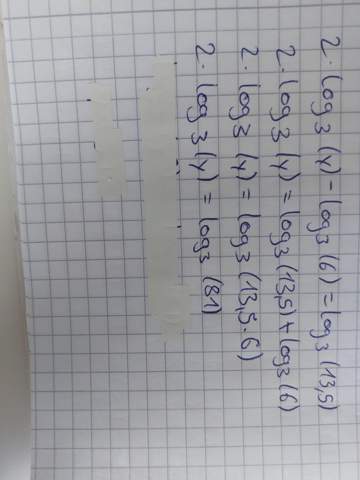 2 · log3 (y) - log3 (6) = log3 (13,5)
2 · log3 (y) = log3 (13,5) + log3 (6)
2 · log3 (y) = log3 (13,5 · 6)
2 · log3 (y) = log3 (81)